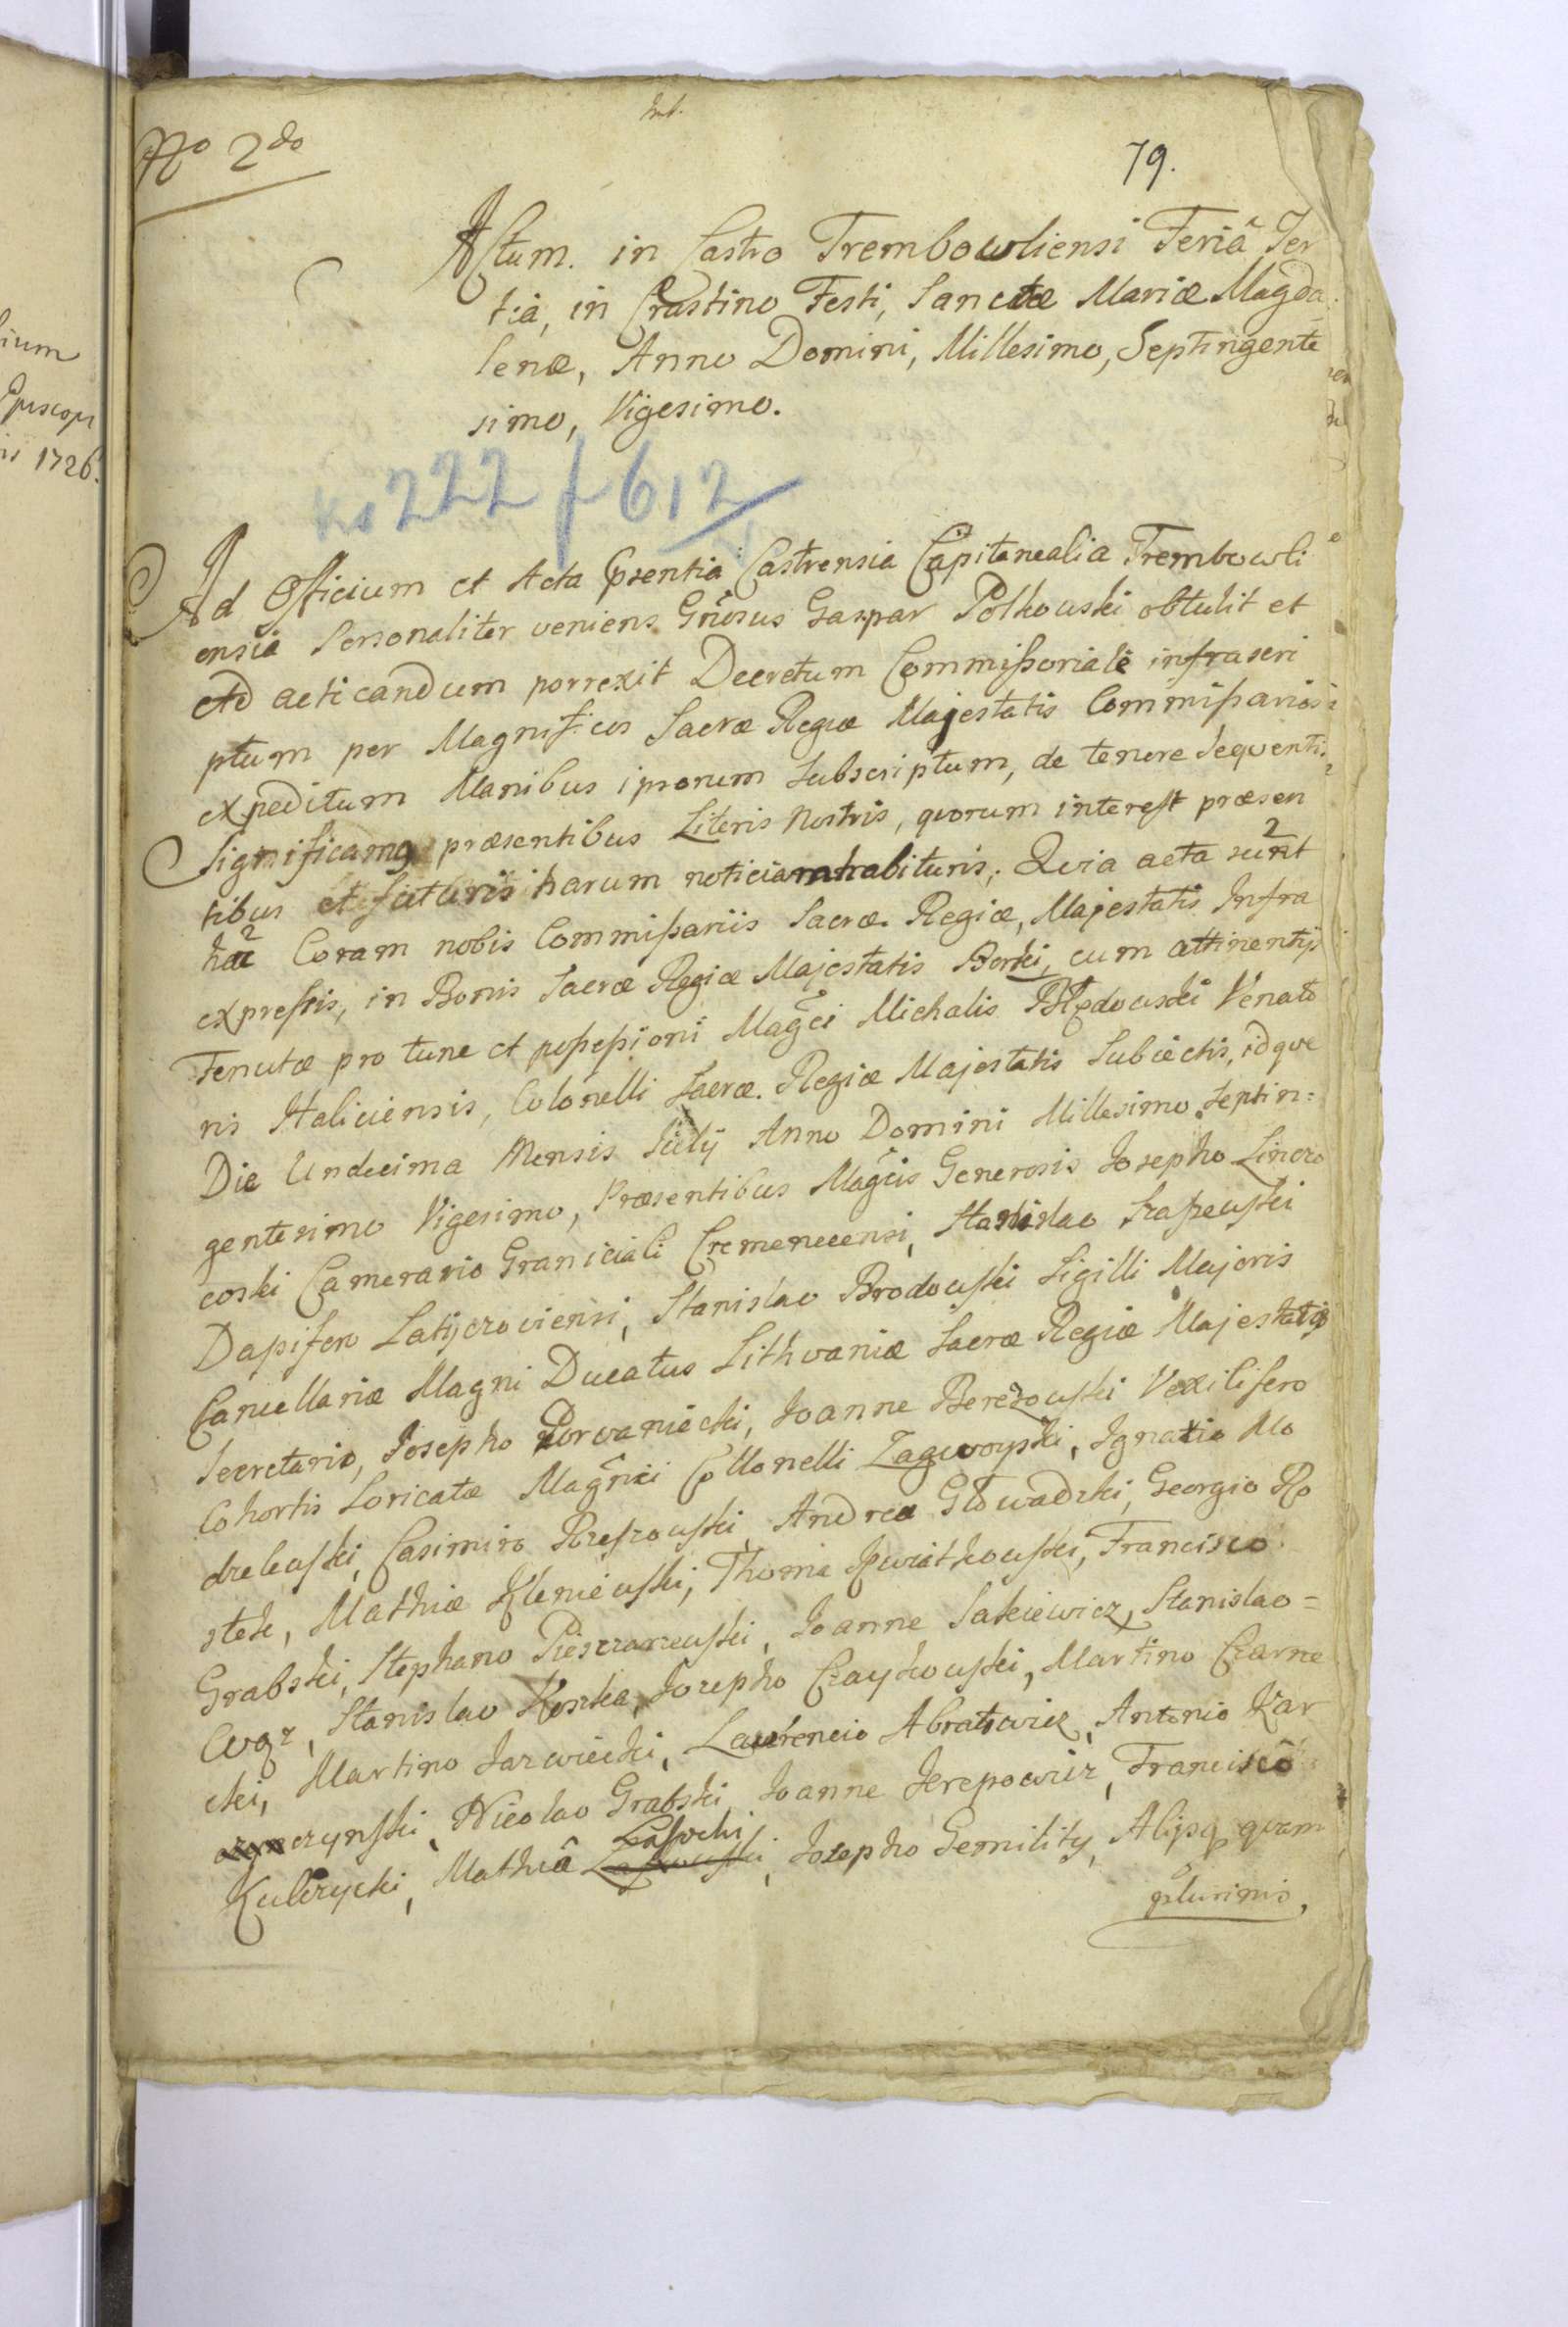 No 2do
79.
Actum. in Castro Trembowliensi Feriâ Ter
tia, in Crastino Festi, Sanctæ Mariæ Magda
lenæ, Anno Domini, Millesimo, Septingente
simo, Vigesimo.
Ks 222 f 612
Ad Officium et Acta Psentia Castrensia Capitanealia Trembowli
ensia Personaliter veniens Gnosus Gaspar Polkowski obtulit et
Ad acticandum porrexit Decretum Commissoriale infrascri
ptum per Magnificos Sacræ Regiæ Majestatis Commissarios
expeditum Manibus ipsorum Subscriptum, de tenore sequenti.
Significamq præsentibus Literis Nostris, quorum interest præsen
tibus et futuris harum noticiam habituris; Quia acta sunt
hæc Coram nobis Commissariis Sacræ. Regiæ, Majestatis Infra
expressis, in Bonis Sacræ Regiæ Majestatis Borki, cum attinentijs
Tenutæ pro tunc et possessioni Magci Michalis Błędowski Venato
ris Haliciensis, Colonelli Sacræ. Regiæ Majestatis Subiectis, idque
Die Undecima Mensis Julij Anno Domini Millesimo Septin:
gentesimo Vigesimo, Præsentibus Magcis Generosis Josepho Linczo
coski Camerario Graniciali Cremenecensi, Stanislao
Dapifero Latyczoviensi, Stanislao Brodowski Sigilli Majoris
Cancellariæ Magni Ducatus Lithvaniæ Sacræ Regiæ Majestatis
Secretario, Josepho Dorvaniecki, Joanne Berezowski Vexilifero
Cohortis Loricatæ Magnici Collonelli Zagwoyski, Ignatio Mo
dzelewski, Casimiro Rzeszowski, Andrea Głowadzki, Georgio Ro
stek, Mathiæ Kleniewski, Thoma Kwiatkowski, Francisco
Grabski, Stephano Pieszczarzewski, Joanne Sakiewicz, Stanislao =
Stanislao Kostka, Jozepho Czaykowski, Martino Czarne
cki, Martino Jarwiecki, Laurencio Abratowicz, Antonio Kar
czynski, Nicolao Grabski, Joanne Jerepowicz, Francisco
Lassochi
Kulczycki, Mathiâ Josepho Gemility, Alijsq quam
plurimis,